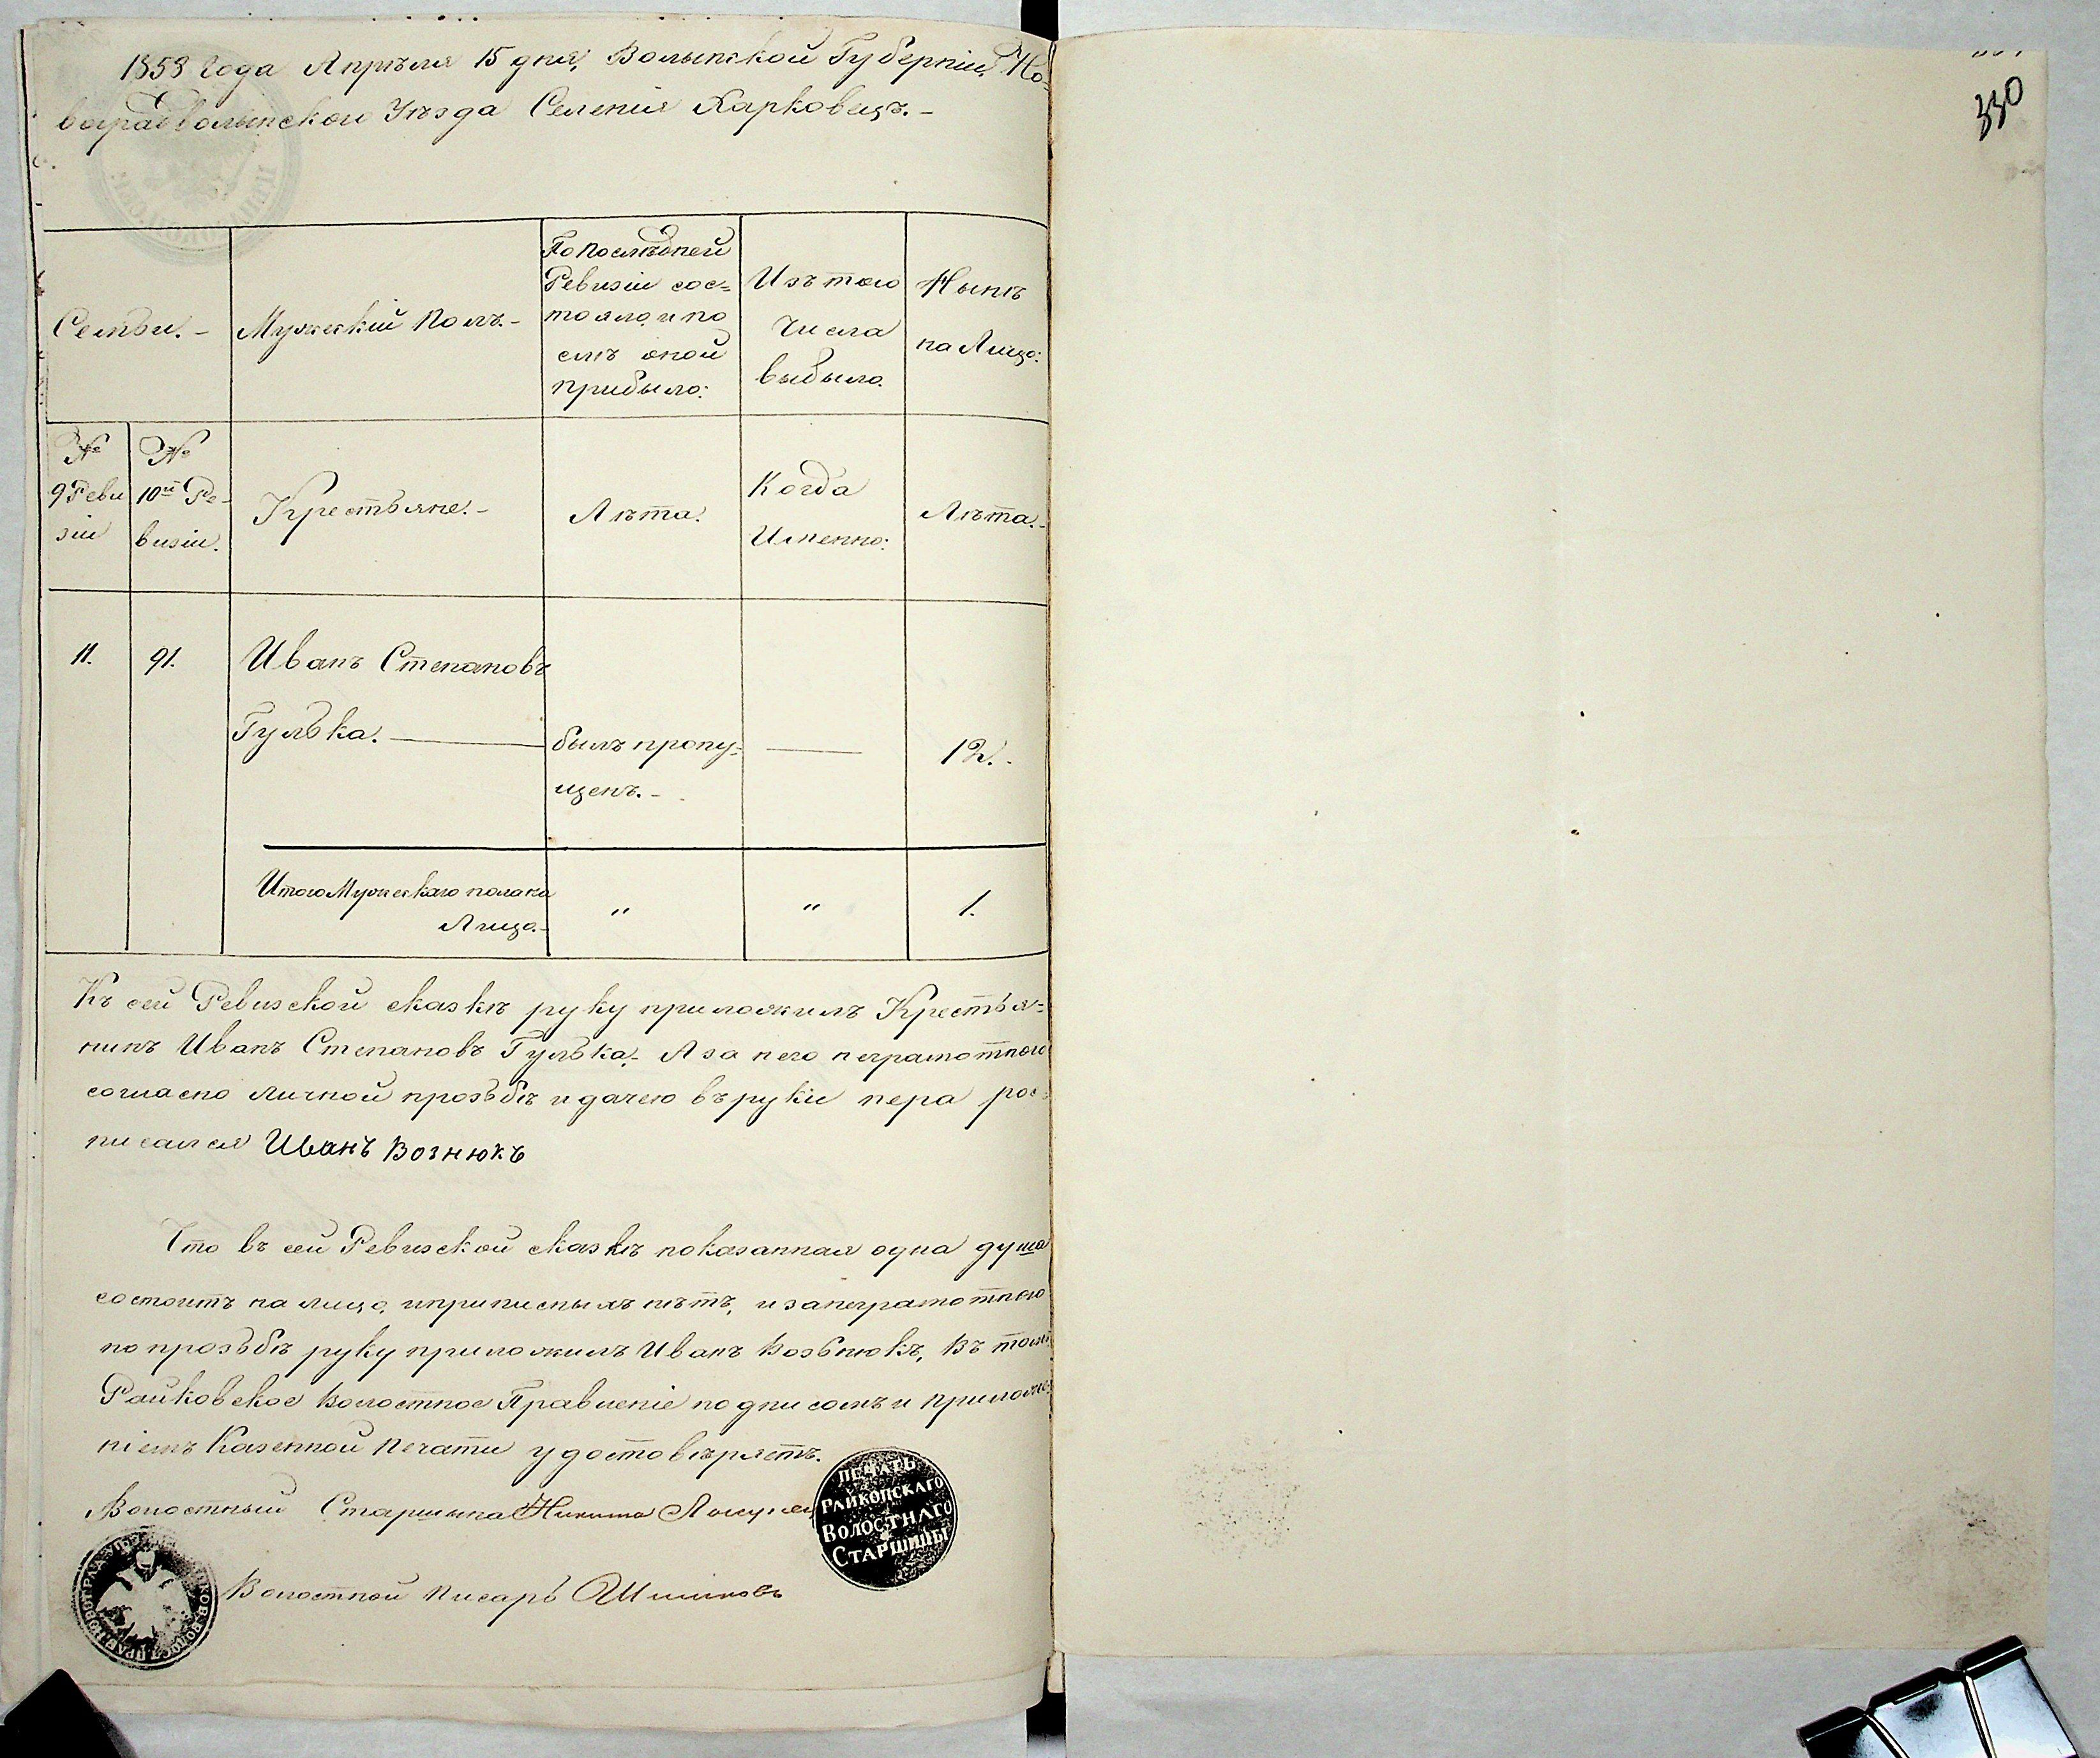 1858 года Апрѣля 15 дня, Волынской Губерніи, Но-
воградволынской Уѣзда Селенія Харковецъ.-
330
Семьи.-
Мужескій Полъ.-
По послѣдней
Ревизіи сос=
тояло, и по
слѣ оной
прибыло:
Изъ того
числа
выбыло.
Нынѣ
на Лицо:
№
9 Реви
зіи
№
10й Ре-
визіи.
Крестьяне.-
Лѣта.
Когда
Именно:
Лѣта.-
11.
91.
Иванъ Степановъ
Гулька.
былъ пропу-
щенъ.-
12.-
Итого Мужескаго пола на
Лицо.-
"
"
1.
Къ сей Ревизской сказкѣ руку приложилъ Крестья=
нинъ Иванъ Степановъ Гулька.- А за него неграмотного
согласно личной прозьбѣ и дачею въ руки пера рос=
писался Иванъ Вознюкъ
Что въ сей Ревизской сказкѣ показанная одна душа
состоитъ на лицо, и приписныхъ нѣтъ, и за неграмотного
по прозьбѣ руку приложилъ Иванъ Возьнюкъ, въ томъ
Райковское Волостное Правленіе подписомъ и приложе-
ніемъ Казенной Печати удостовѣряетъ.
Волостный Старшина Никита
ПЕЧАТЬ
РАЙКОПСКАГО
ВОЛОСТНАГО
СТАРШИНЫ
Волостной Писарь